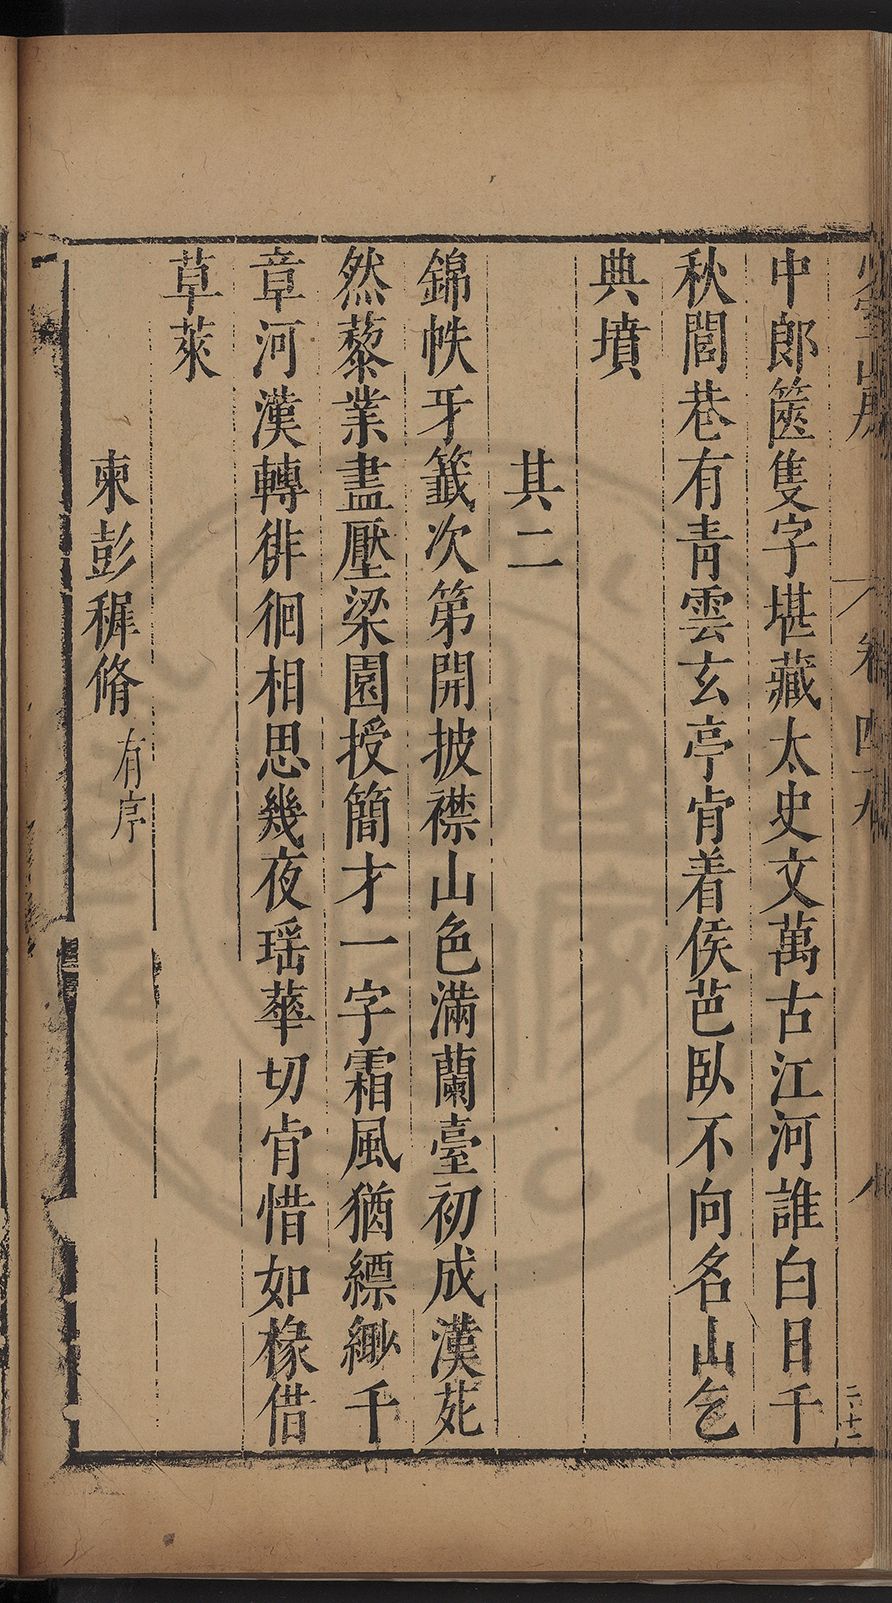 中郎篋隻字堪藏太史文萬古江河誰白日千
秋閻巷有青雲玄亭肯着侯芭臥不向名山乞
典墳
其二
錦帙牙籤次第開披襟山色滿蘭臺初成漢苑
然藜業盡壓梁園授簡才一字霜風猶縹緲千
章河漢轉徘徊相思幾夜瑶華切肯惜如椽借
草萊
柬彭稺脩有序